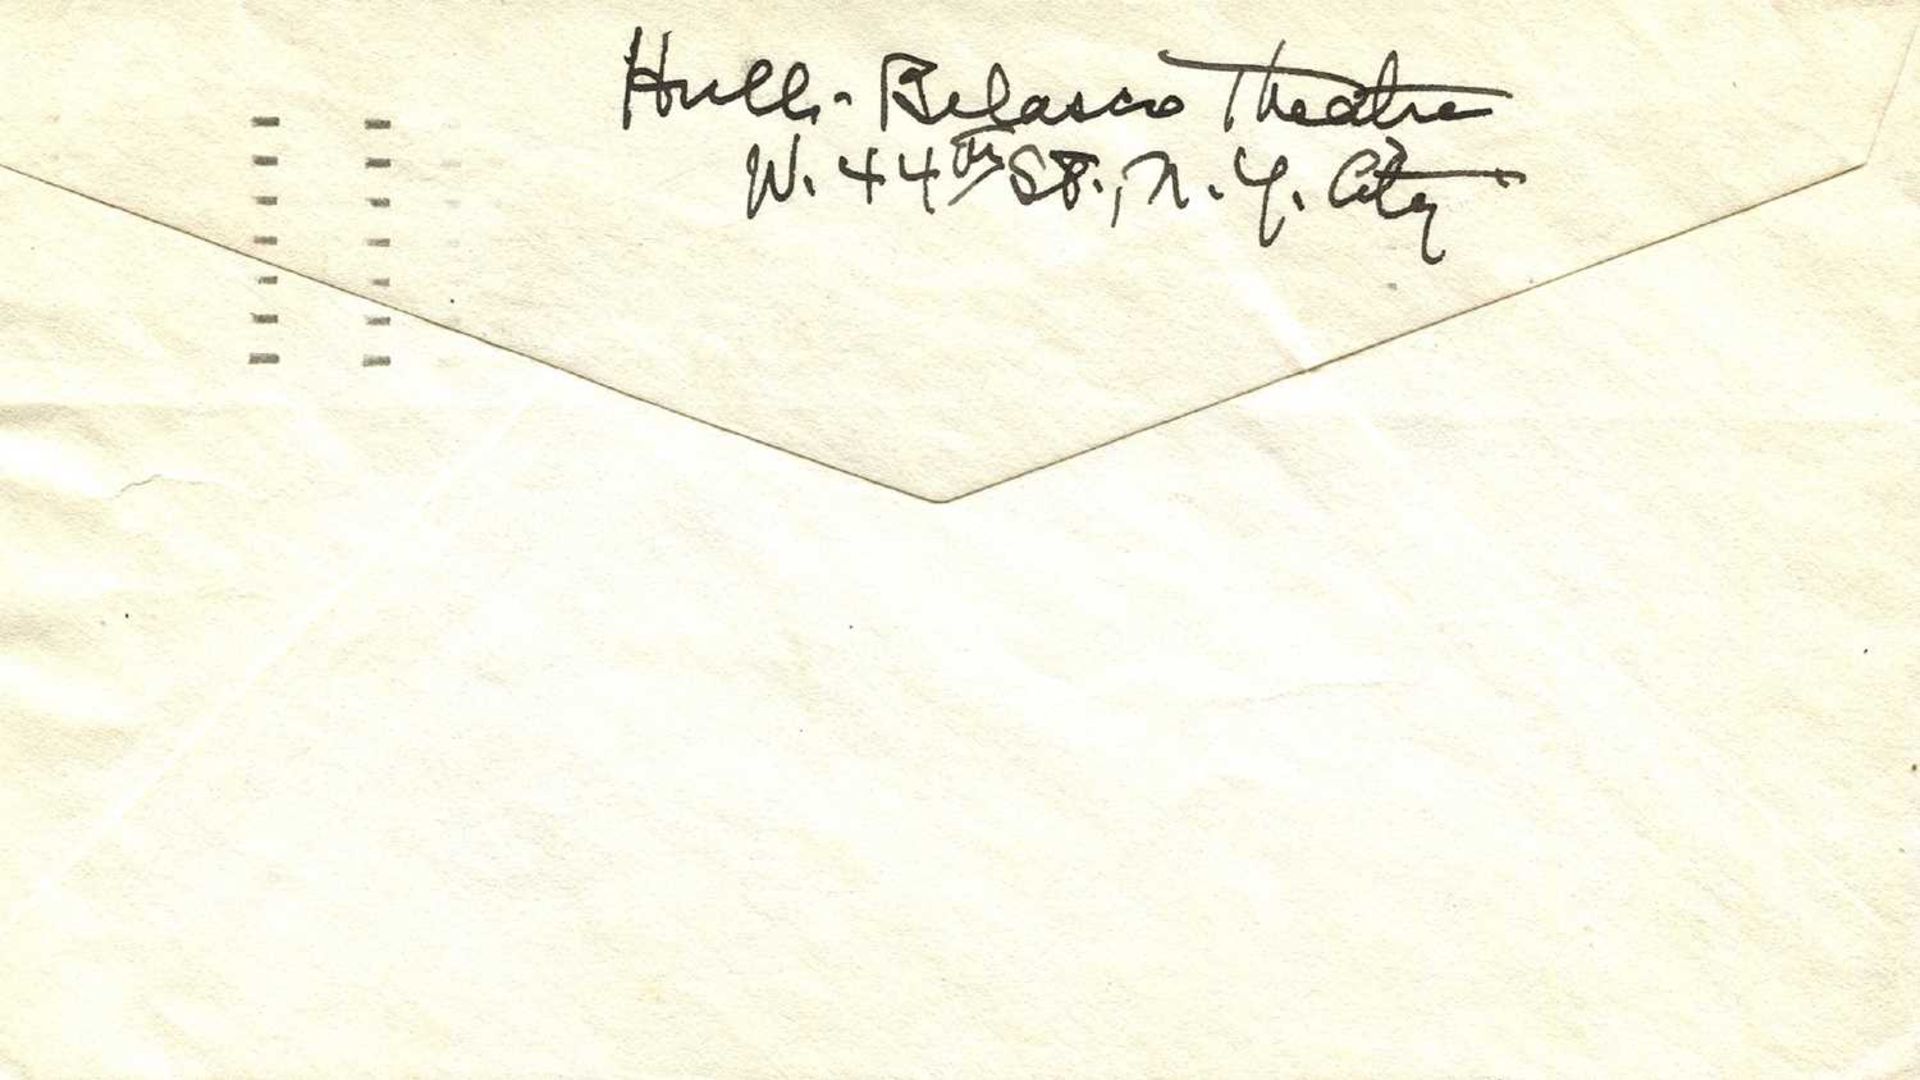 Hull - Belasco Theatre
W. 44th St., N. Y. City